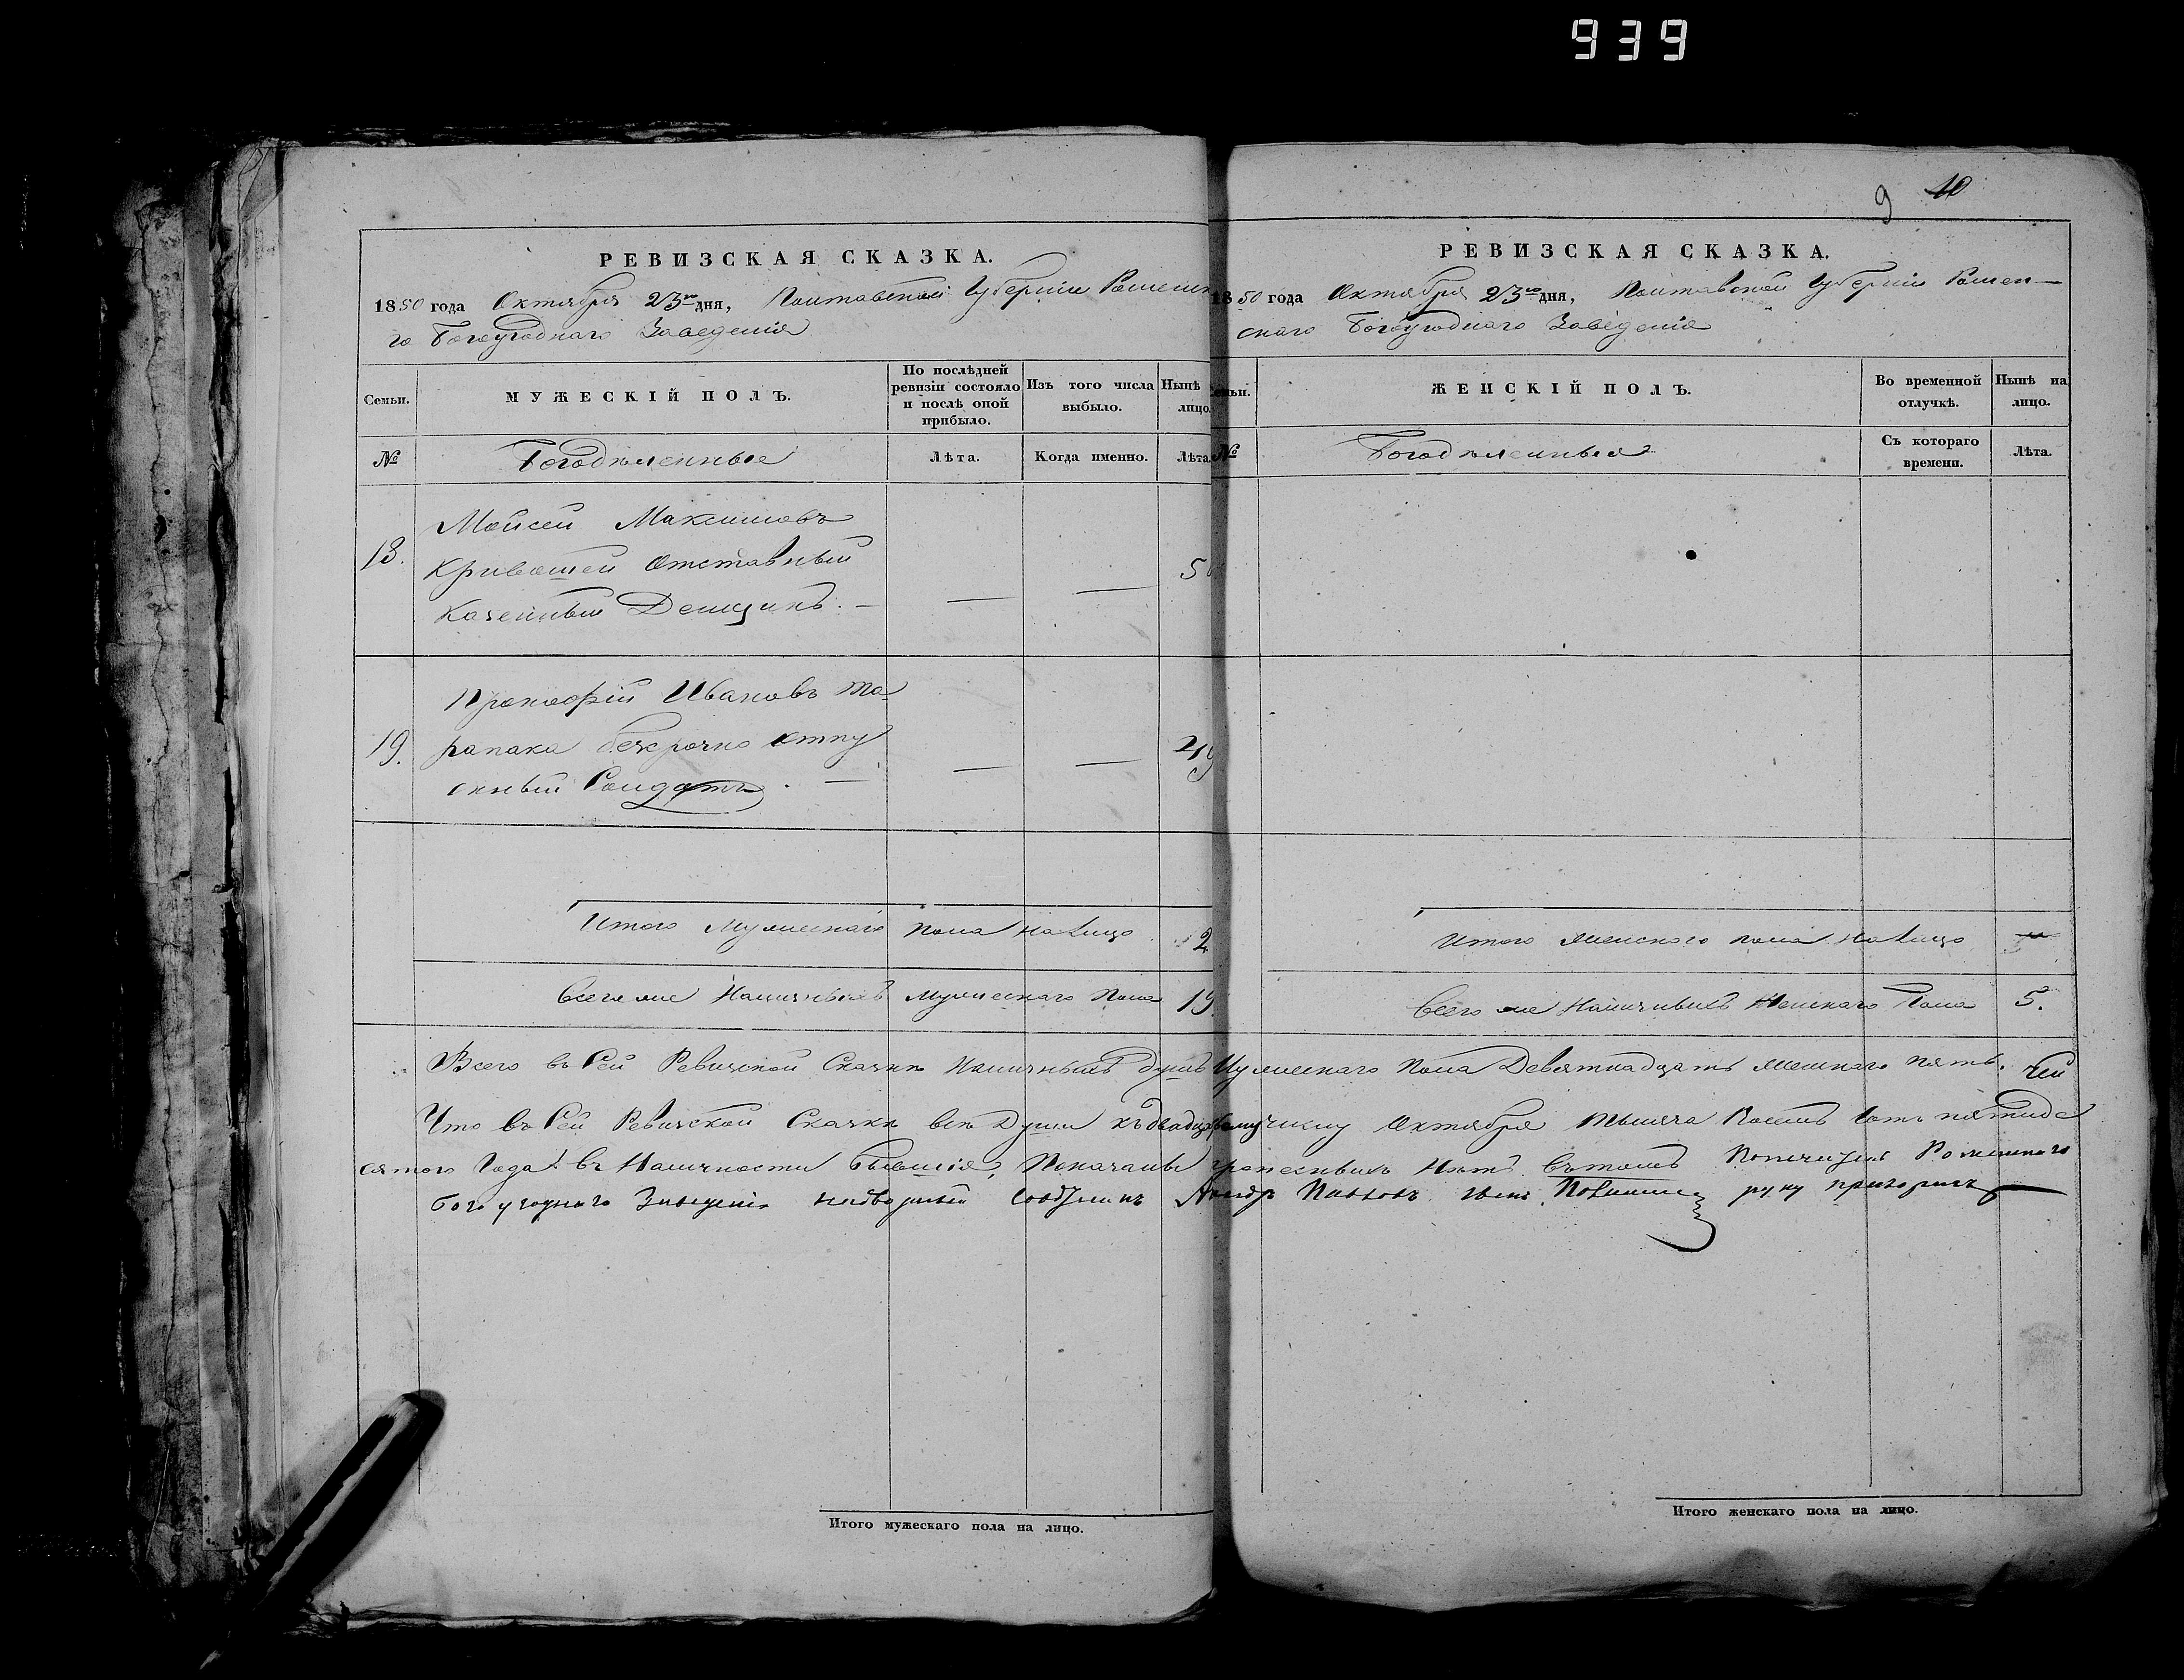 939
РЕВИЗСКАЯ СКАЗКА.
1850 года Октября 23го дня, Полтавской Губерніи Роменска
го Богоугоднаго Заведенія
Семьи.
МУЖЕСКІЙ ПОЛЪ.
По послѣдней
ревизіи состояло
и послѣ оной
прибыло.
Изъ того числа
выбыло.
Нынѣ
лицо.
№
Богодѣленные
Лѣта.
Когда именно.
Лѣта.
18.
Мойсей Максимовъ
Кривошей Отставный
Казенный Денщикъ. —
— — 5
19.
Прокофій Ивановъ Та-
рапака безсрочно отпу
скный Солдатъ. —
— — 49
Итого Мужескаго пола на лицо 2
Всего же Наличныхъ мужескаго Пола 19
9 10
РЕВИЗСКАЯ СКАЗКА.
1850 года Октября 23го дня, Полтавской Губерніи Ромен—
скаго Богоугоднаго Заведенія
Семьи.
ЖЕНСКІЙ ПОЛЪ.
Во временной
отлучкѣ.
Нынѣ на
лицо.
№
Богодѣленныя
Съ котораго
времени.
Лѣта.
Итого женского пола на лицо —
Всего же Наличныхъ Женскаго Пола 5.
Всего въ Сей Ревизской Сказкѣ Наличныхъ душъ Мужескаго Пола Девятнадцать женскаго пять.
Что въ Сей Ревизской Сказкѣ всѣ Души къ двадца числу Октября тысяча Восемь Сотъ пятиде
сятого Года въ Наличности бывшія, Показаны и прописныхъ Нѣтъ въ томъ Попечитель Роменского
богоугодного Заведенія надворный Совѣтникъ Павловъ сынъ руку приложилъ
Итого мужескаго пола на лицо.
Итого женскаго пола на лицо.